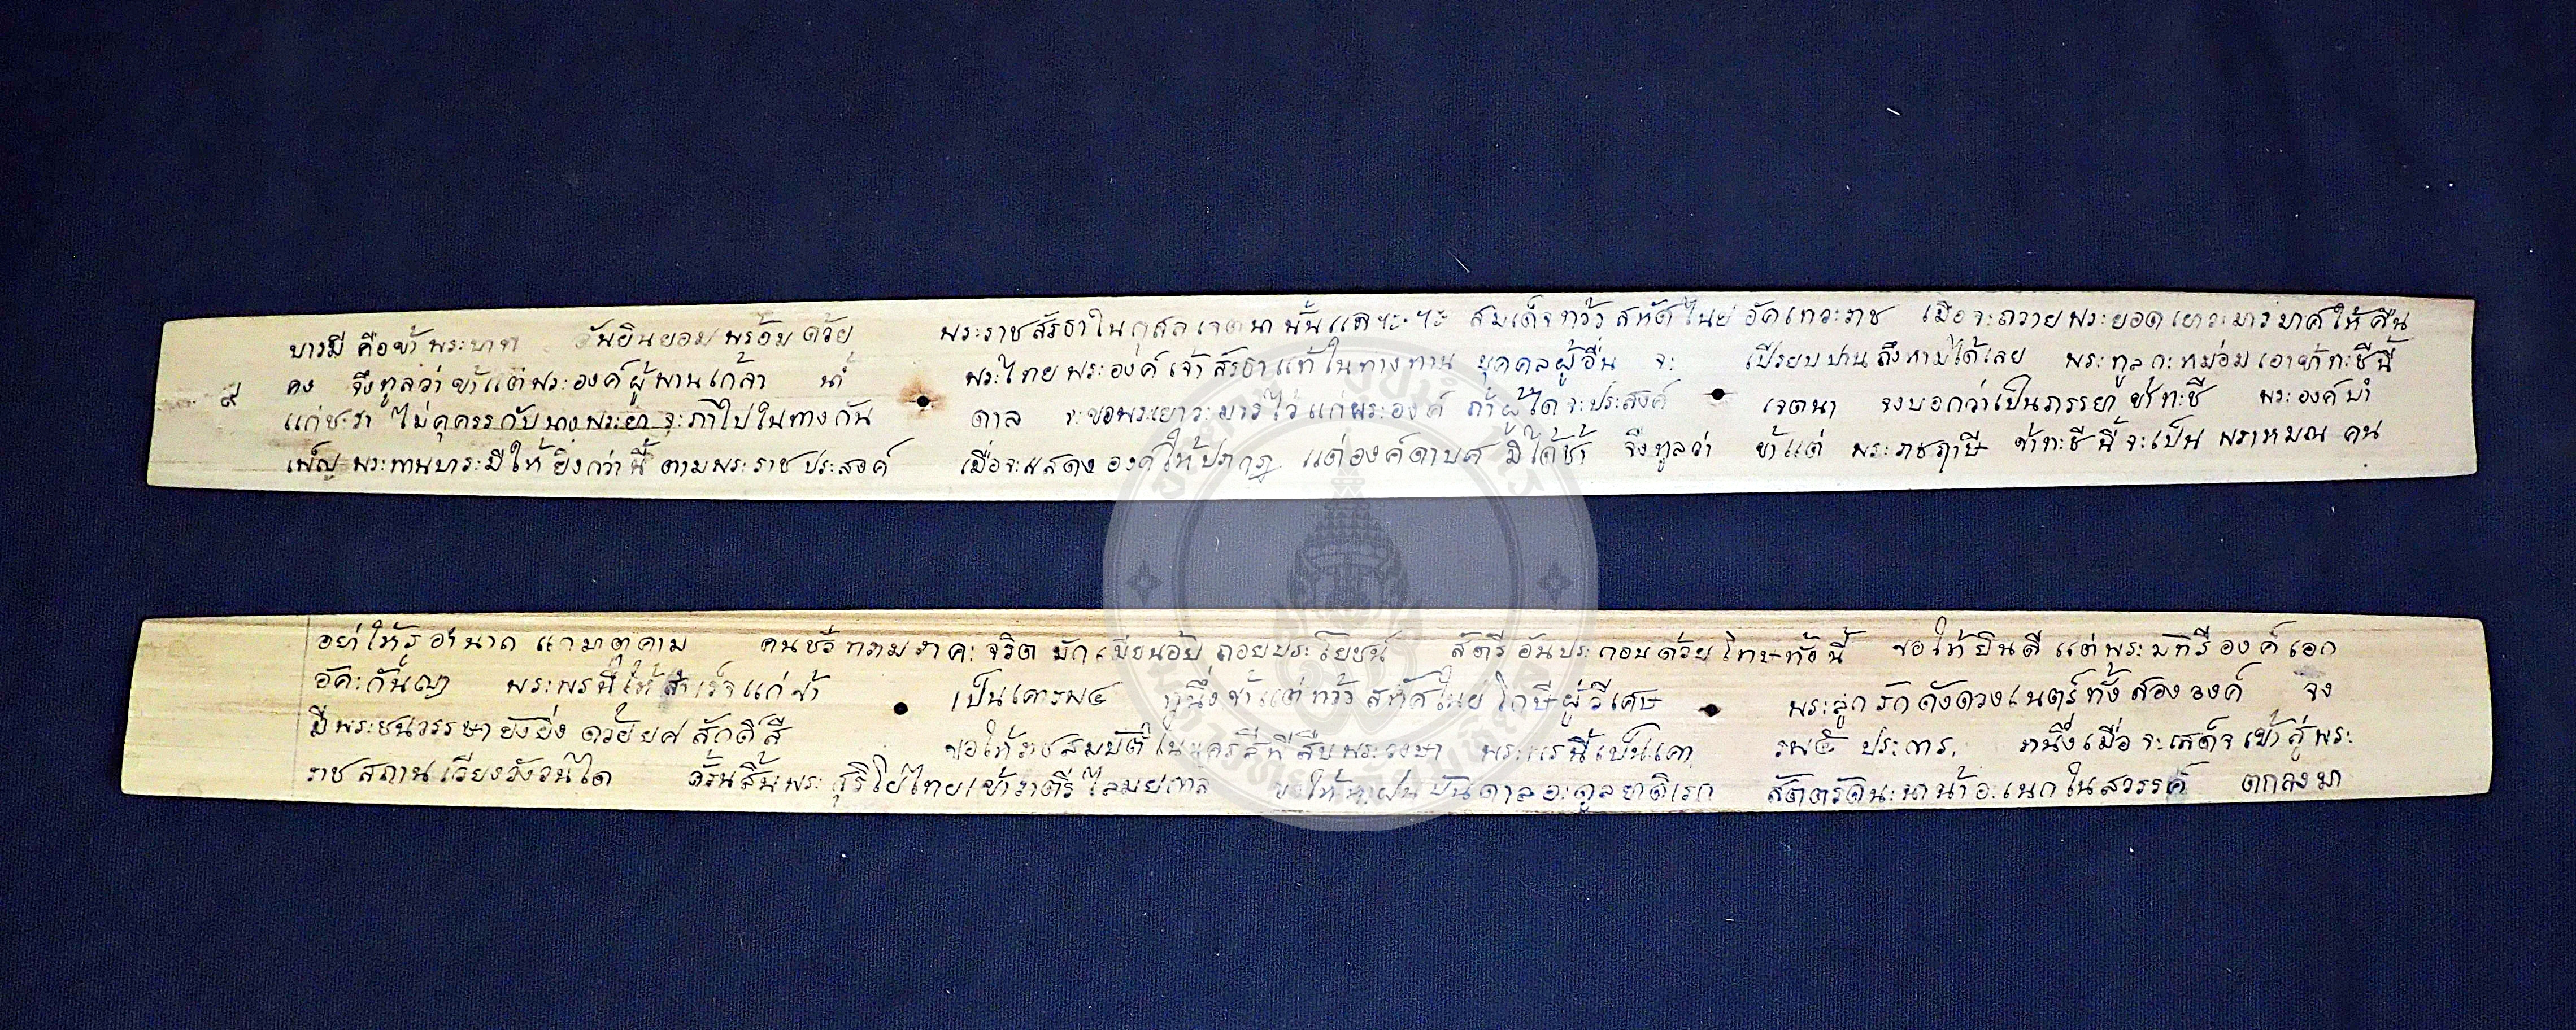 บารมี คือข้าพระบาท อันยินยอมพร้อมด้วย พระราชสัรธาในกุสลเจตนานั้นแล สมเด็จทร้าวสหัดไนย อัคเทวะราช เมื่อจะถวายพระยอดเยาวะมารมาศให้คืน
๙ คง จึงทูลว่าข้าแต่พระองค์ผู้พานเกล้า น้ำ พระไทยพระองค์เจ้าสัรธาแท้ในทางทาน บุคคลผู้อื่น จะ เปรียบปานถึงหามิได้เลย พระทูลกะหม่อมเอาข้าทะชีนี้
แก่ชะรา ไม่คุครรกับนางพระยา จะภาไปในทางกัน ดาล จะขอพระเยาวะมารไว้แก่พระองค์ ถ้าผู้ใดจะประสงค์ เจตนา จงบอกว่าเป็นภรรยาข้าทะชี พระองค์บำ
เพ็ญพระทานบาระมีให้ยิ่งกว่านี้ ตามพระราชประสงค์ เมื่อจะแสดงองค์ให้ปรากฏ แต่องค์ดาบศมิได้ช้า จึงทูลว่า ข้าแต่ พระราชฤาษี ข้าทะชีนี้จะเป็น พราหมณ คน
อย่าให้รู้อำนาถ แกมาตุคาม คนชั่วทรามราคะจริต มักเขียนอ้อยถอยประโยชน์ สัตรีอันประกอบด้วยโทษทั้งนี้ ขอให้ยินดี แต่พระมัทรีองค์เอก
อัคะกันญา พระพรนี้ให้สำเร็จแก่ข้า เป็นเคารพ๔ หนึ่งข้าแต่ทร้าวสหัดไนยโกษีผู้วิเศษ พระลูกรักดังดวงเนตร์ทั้งสององค์ จง
มีพระชนวรรษายังยิ่ง ด้วยยศสักดิ์สี ขอให้ราชสมบัติในนคร์สีพีสืบพระวงษา พระพรนี้เป็นเคา รพ๕ ประการ, หนึ่งเมื่อจะเสด็จเข้าสู่พระ
ราชสถานเวียงวังวันใด ครั้นสิ้นพระสุริโยไทยเข้าราตรีไสมยกาล ขอให้ห่าฝนบันดาลอะดูลยาดิเรก สัตตรัตนะนาน้าอะเนกในสวรรค์ ตกลงมา